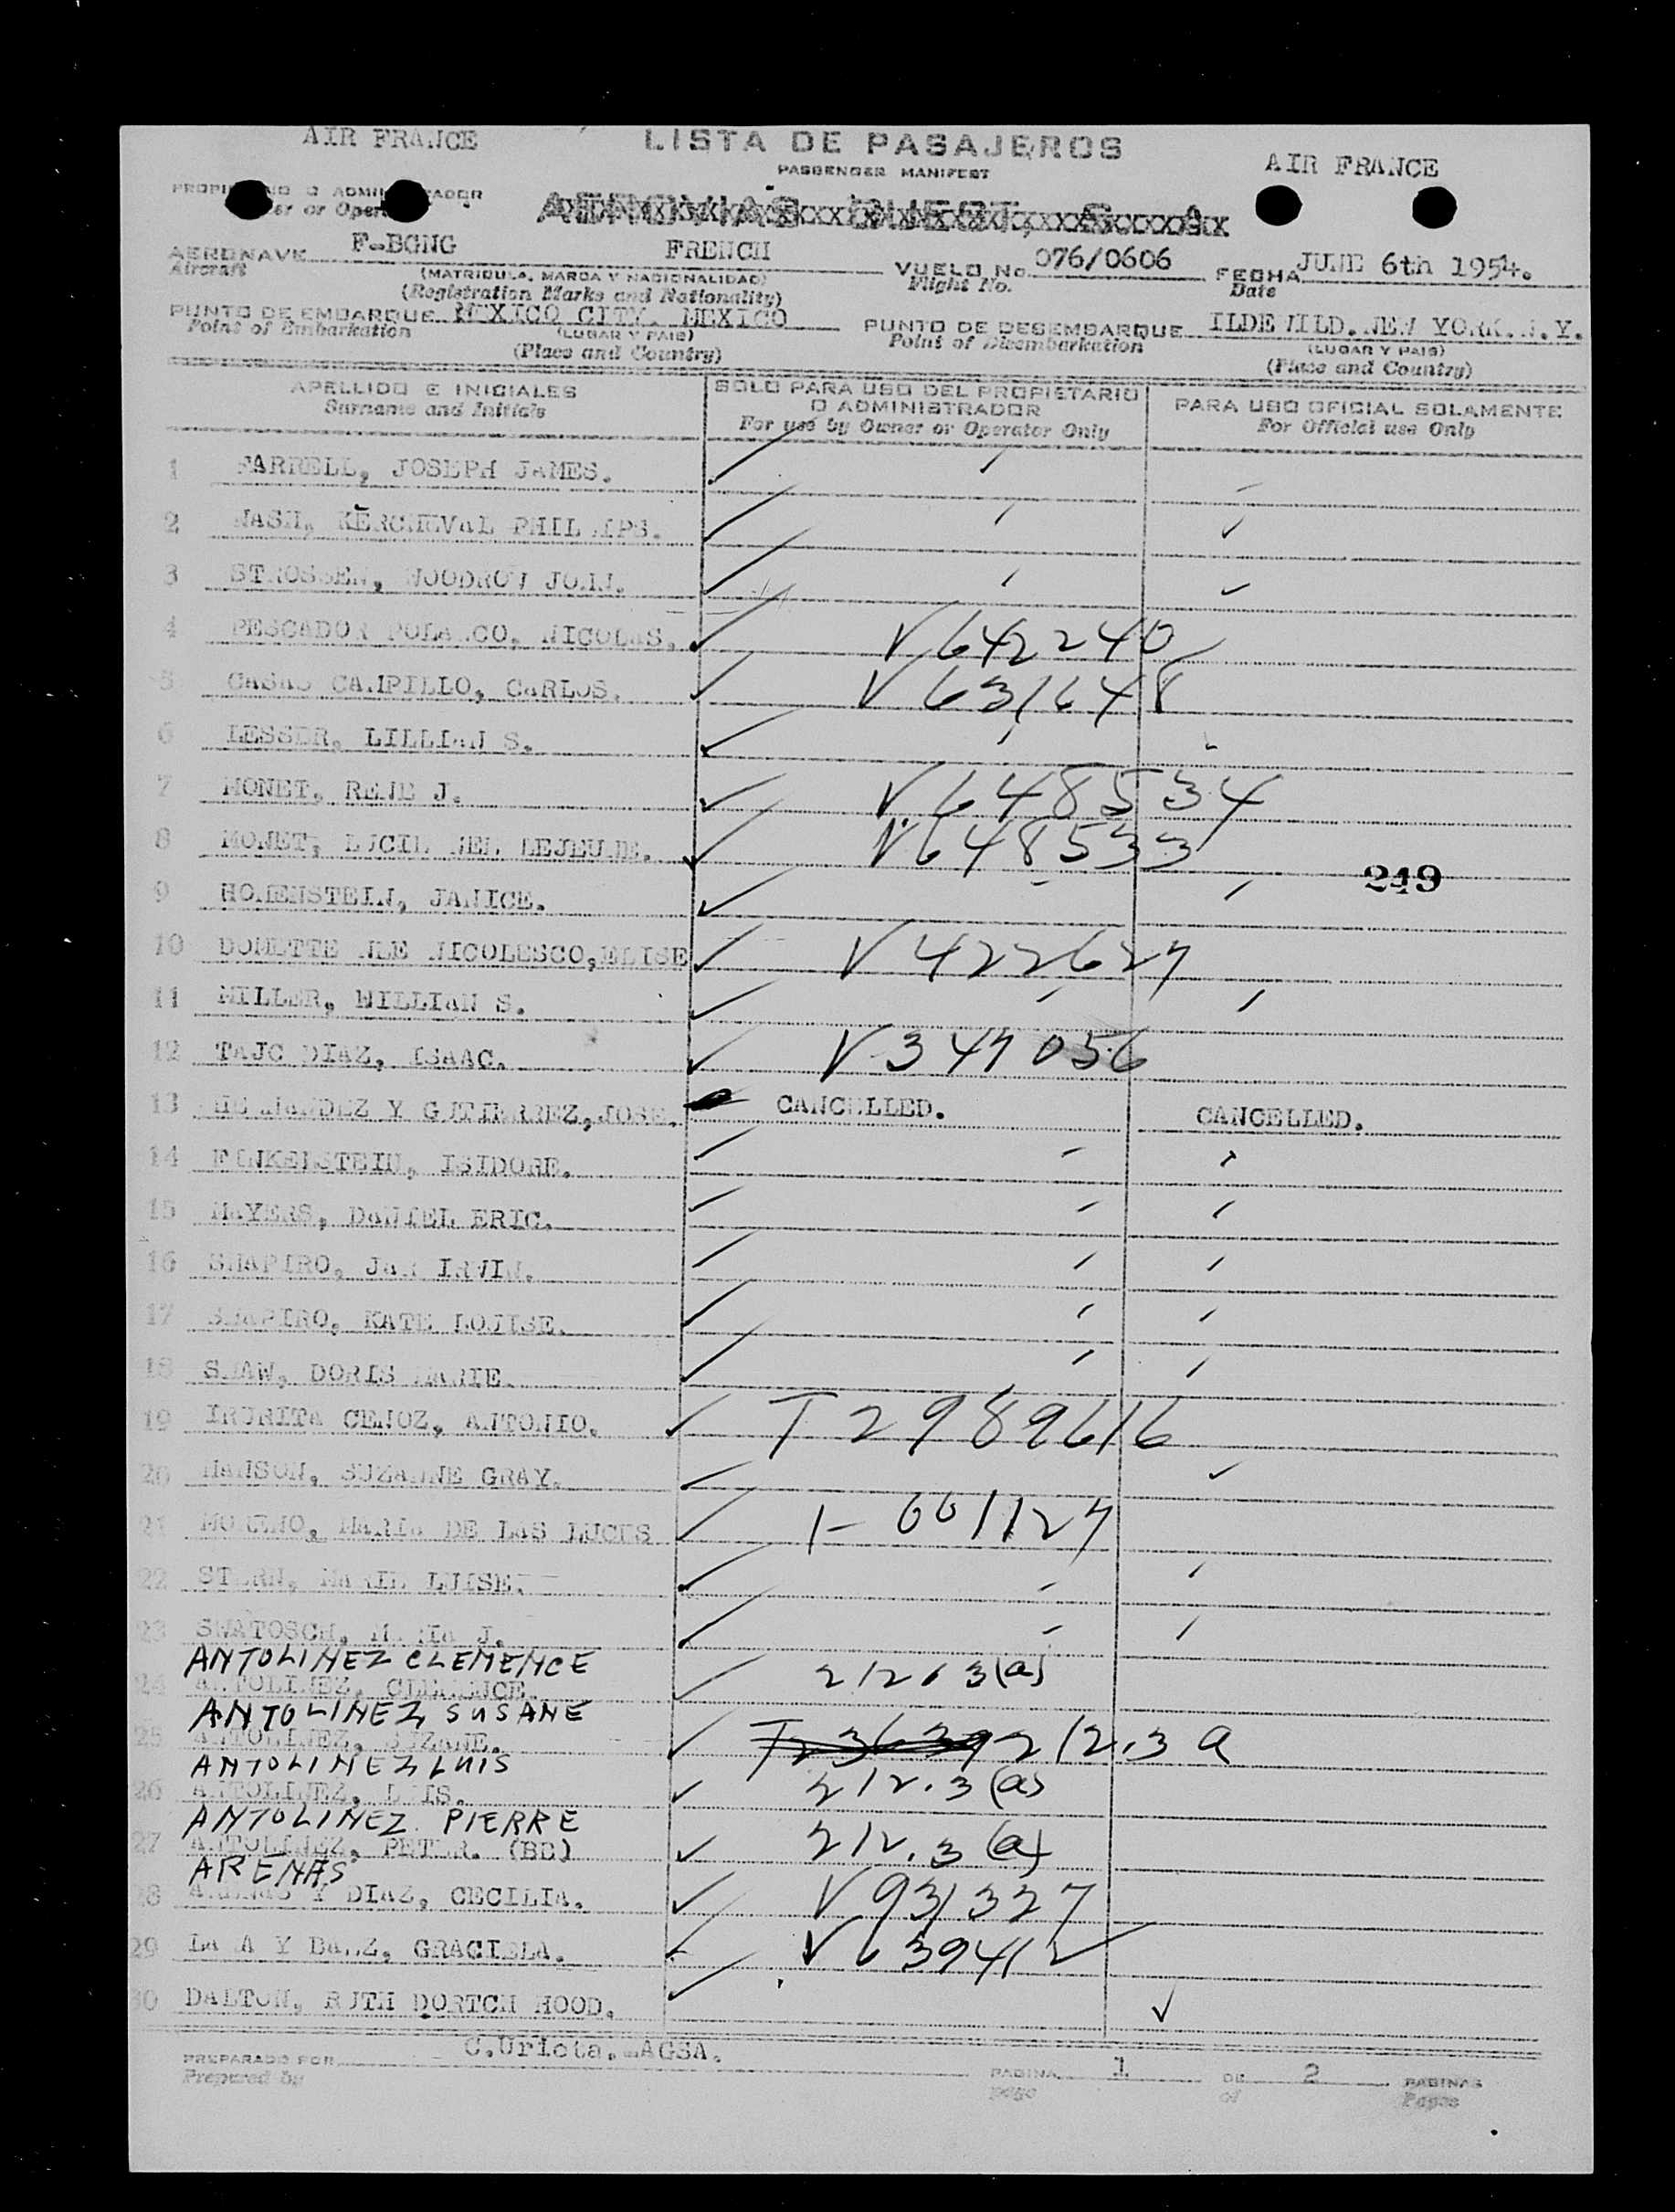 AIR FRANCE
LISTA DE PASAJEROS
PASSENGER MANIFEST
AIR FRANCE
or Operator
AERONAVE F-BGNG FRENCH VUELO No 076/0606 FECHA JUNE 6th 1954.
Aircraft (MATRICULA, MARCA Y NACIONALIDAD) Flight No. Date
(Registration Marks and Nationality)
PUNTO DE EMBARQUE MEXICO CITY. MEXICO PUNTO DE DESEMBARQUE ILDEWILD. NEW YORK. N.Y.
Point of Embarkation (LUGAR Y PAIS) Point of Disembarkation (LUGAR Y PAIS)
(Place and Country) (Place and Country)
APELLIDO E INICIALES SOLO PARA USO DEL PROPIETARIO
Surname and Initials O ADMINISTRADOR PARA USO OFICIAL SOLAMENTE
For use by Owner or Operator Only For Official use Only
1 FARRELL, JOSEPH JAMES.
2 NASH, KERCHEVAL PHILLIPS.
3 STROSSEN, WOODROW JOHN.
4 PESCADOR POLANCO, NICOLAS. V 642240
5 CASAS CAMPILLO, CARLOS. V 631648
6 LESSER, LILLIAN S.
7 MONET, RENE J. V 648534
8 MONET, LEJEUNE. V 648533
249
9 JANICE.
10 NEE NICOLESCO, ELISE V 422627
11 MILLER, WILLIAM S.
12 TAJC DIAZ, ISAAC. V 347056
13 HERNANDEZ Y GUTIERREZ, JOSE. CANCELLED. CANCELLED.
14 FINKENSTEIN, ISIDORE.
15 MAYERS, DANIEL ERIC.
16 SHAPIRO, IRVIN.
17 SHAPIRO, KATE LOUISE.
18 SHAW, DORIS MARIE.
19 IRURITA CENOZ, ANTONIO. T 2989616
20 SUZANNE GRAY.
21 MORENO, MARIA DE LAS LUCES I-661127
22 STERN, MARIE LUISE.
23 SWATOSCH, J.
ANTOLINEZ CLEMENCE
24 ANTOLINEZ, CLEMENCE. 212.3(a)
ANTOLINEZ, SUSANE
25 ANTOLINEZ, SUZANE. 212.3 a
ANTOLINEZ LUIS
26 ANTOLINEZ, LUIS. 212.3(a)
ANTOLINEZ PIERRE
27 ANTOLINEZ, PETER. (BB) 212.3(a)
ARENAS
28 ARENAS Y DIAZ, CECILIA. V 931327
29 GRACIELA. V 639412
30 DALTON, RUTH DORTCH HOOD.
PREPARADO POR C.Uriota. AGSA. PAGINA 1 DE 2 PAGINAS
Prepared by page of Pages